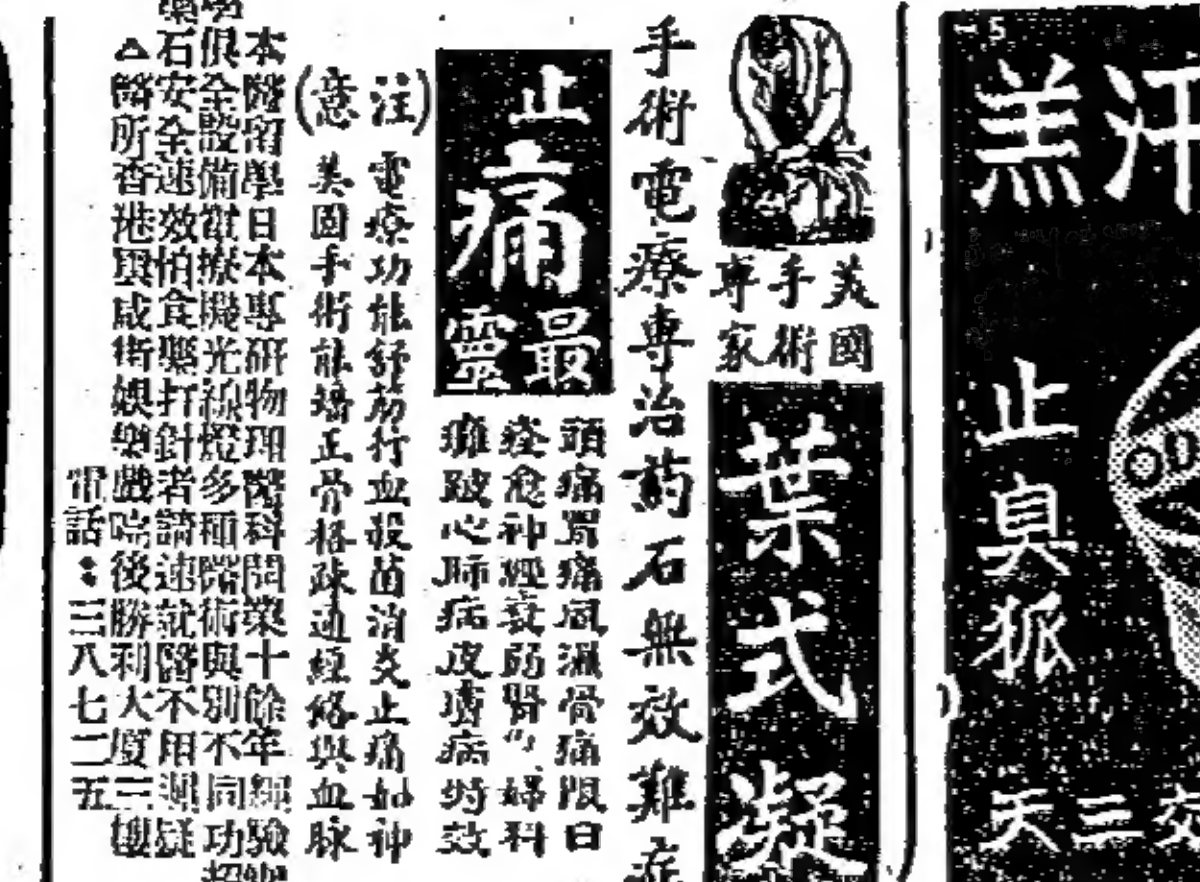 汗
羔
止臭狐
交三天
美國
手術
專家
葉式凝
手術電療專治药石無效難症
止痛
最靈
頭痛胃痛風濕骨痛眼白
痊愈神經衰弱腎 婦科
癱跛心肺病皮膚病特效
(注意)
電療功能舒筋行血殺菌消炎止痛如神
美國手術能矯正骨格疎通經絡與血脉
本醫留學日本專研物理醫科開業十餘年經驗
俱全設備電療機光線燈多種醫術與別不同功
石安全速效怕食藥打針者請速就醫不用遲疑
△醫所香港 威街娛樂戲院後勝利大廈三樓
電話:三八七二五